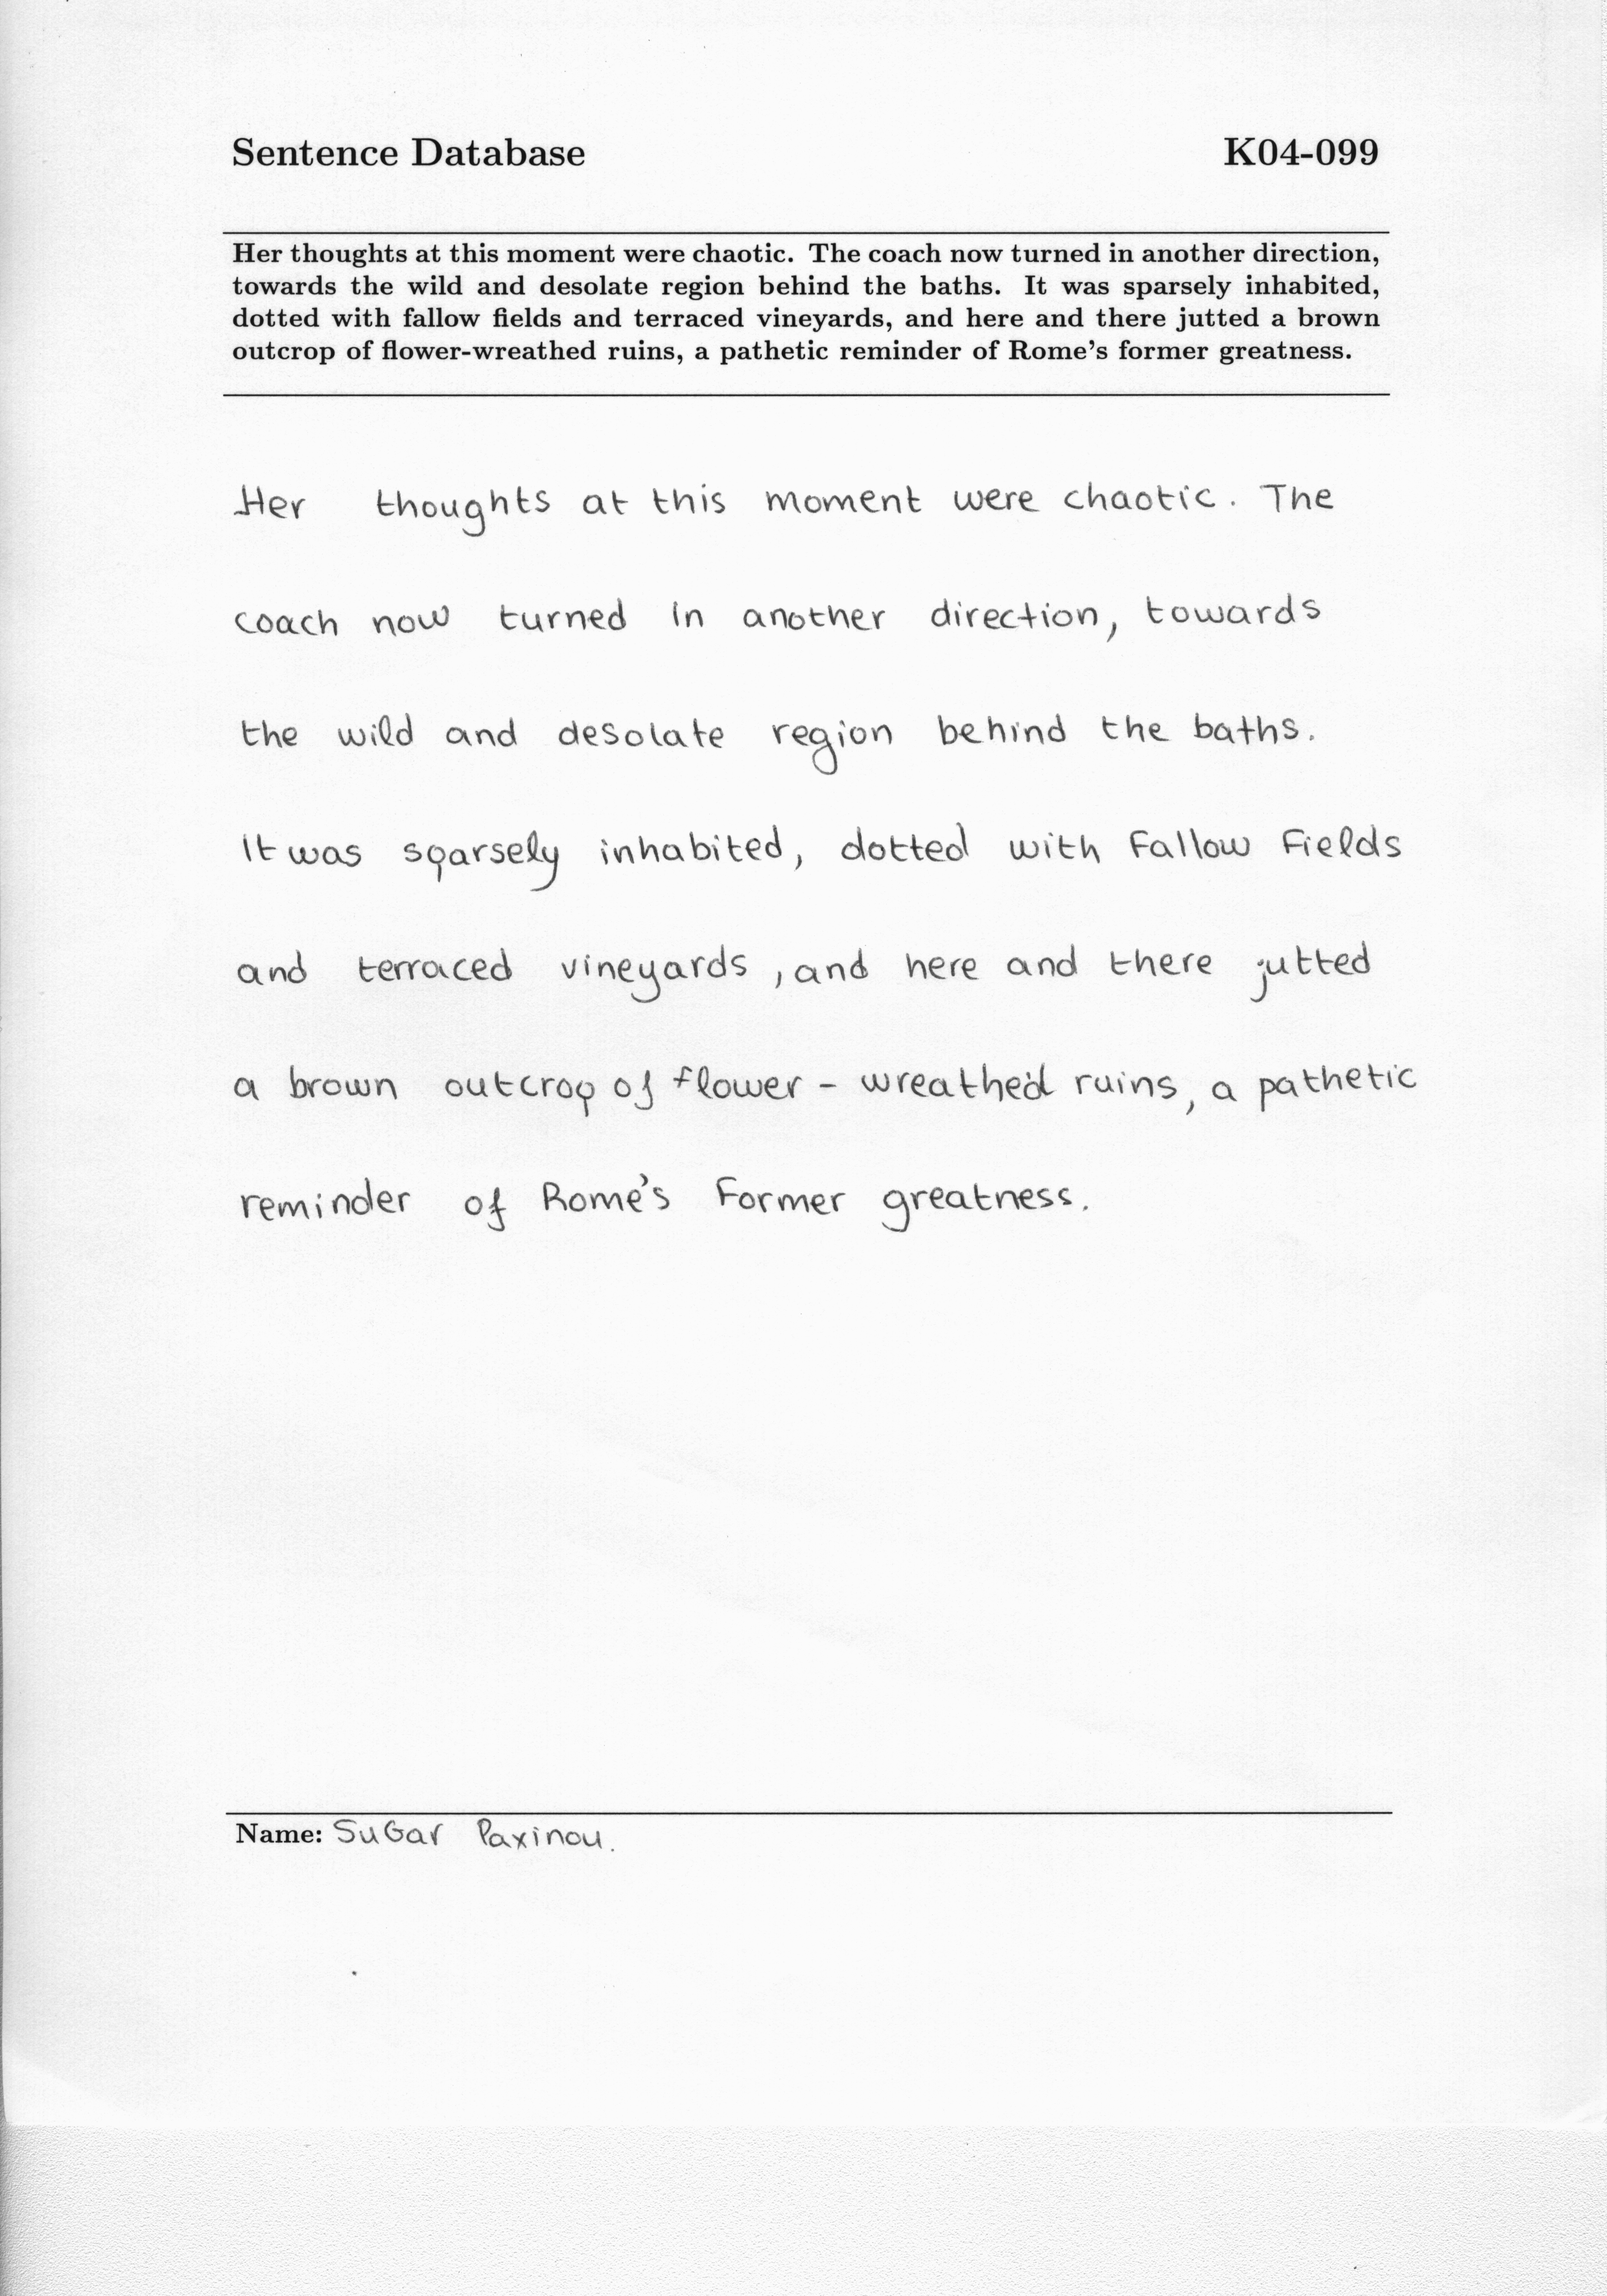 Sentence Database K04-099
Her thoughts at this moment were chaotic. The coach now turned in another direction,
towards the wild and desolate region behind the baths. It was sparsely inhabited,
dotted with fallow fields and terraced vineyards, and here and there jutted a brown
outcrop of flower-wreathed ruins, a pathetic reminder of Rome's former greatness.
Her thoughts at this moment were chaotic. The
coach now turned in another direction, towards
the wild and desolate region behind the baths.
It was sparsely inhabited, dotted with Fallow Fields
and terraced vineyards, and here and there jutted
a brown outcrop of flower - wreathed ruins, a pathetic
reminder of Rome's Former greatness.
Name: SuGar Paxinou.